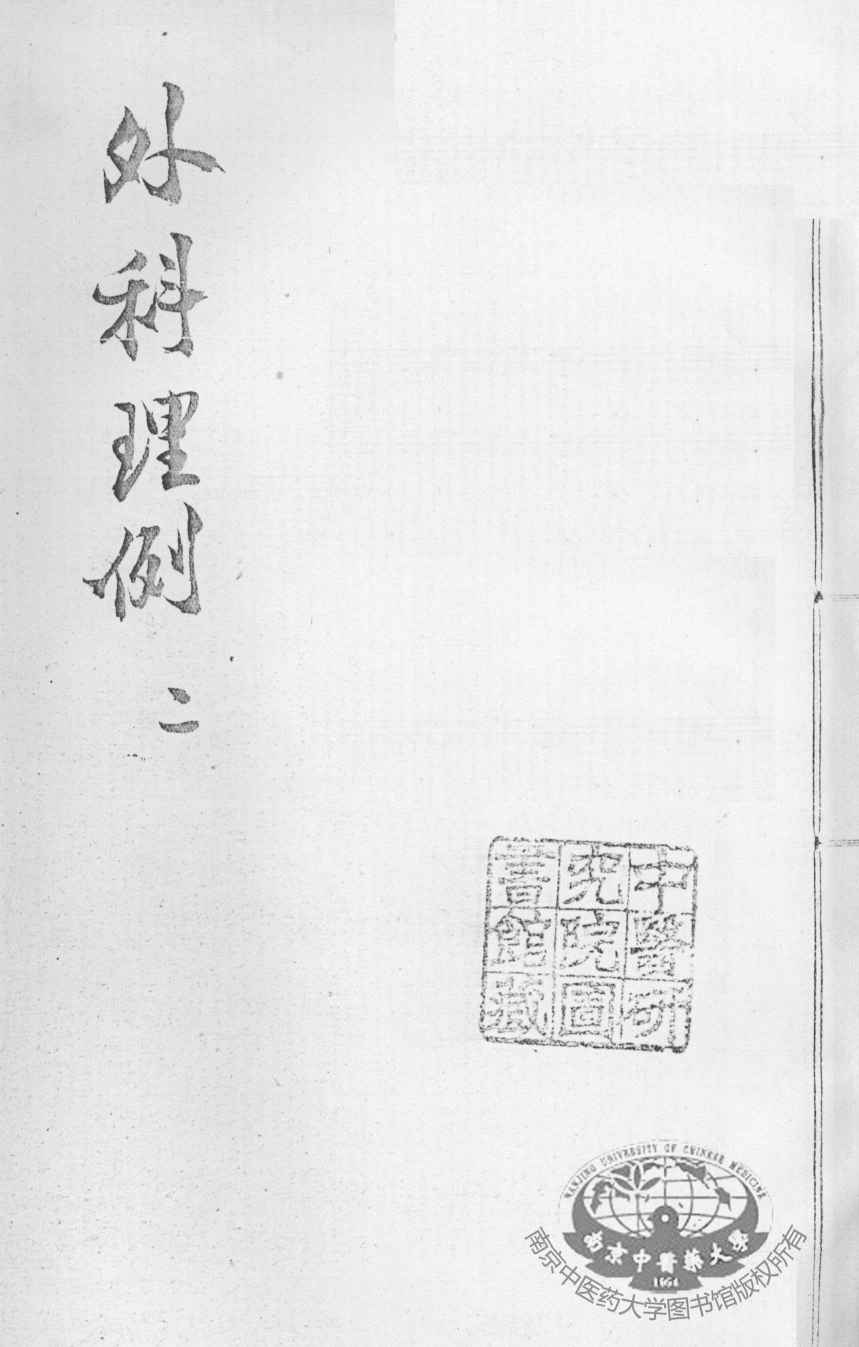 外科理例 二
中醫研
究院圖
書館藏
NANJING UNIVERSITY OF CHINESE MEDICINE
南京中醫藥大學
1954
南京中医药大学图书馆版权所有